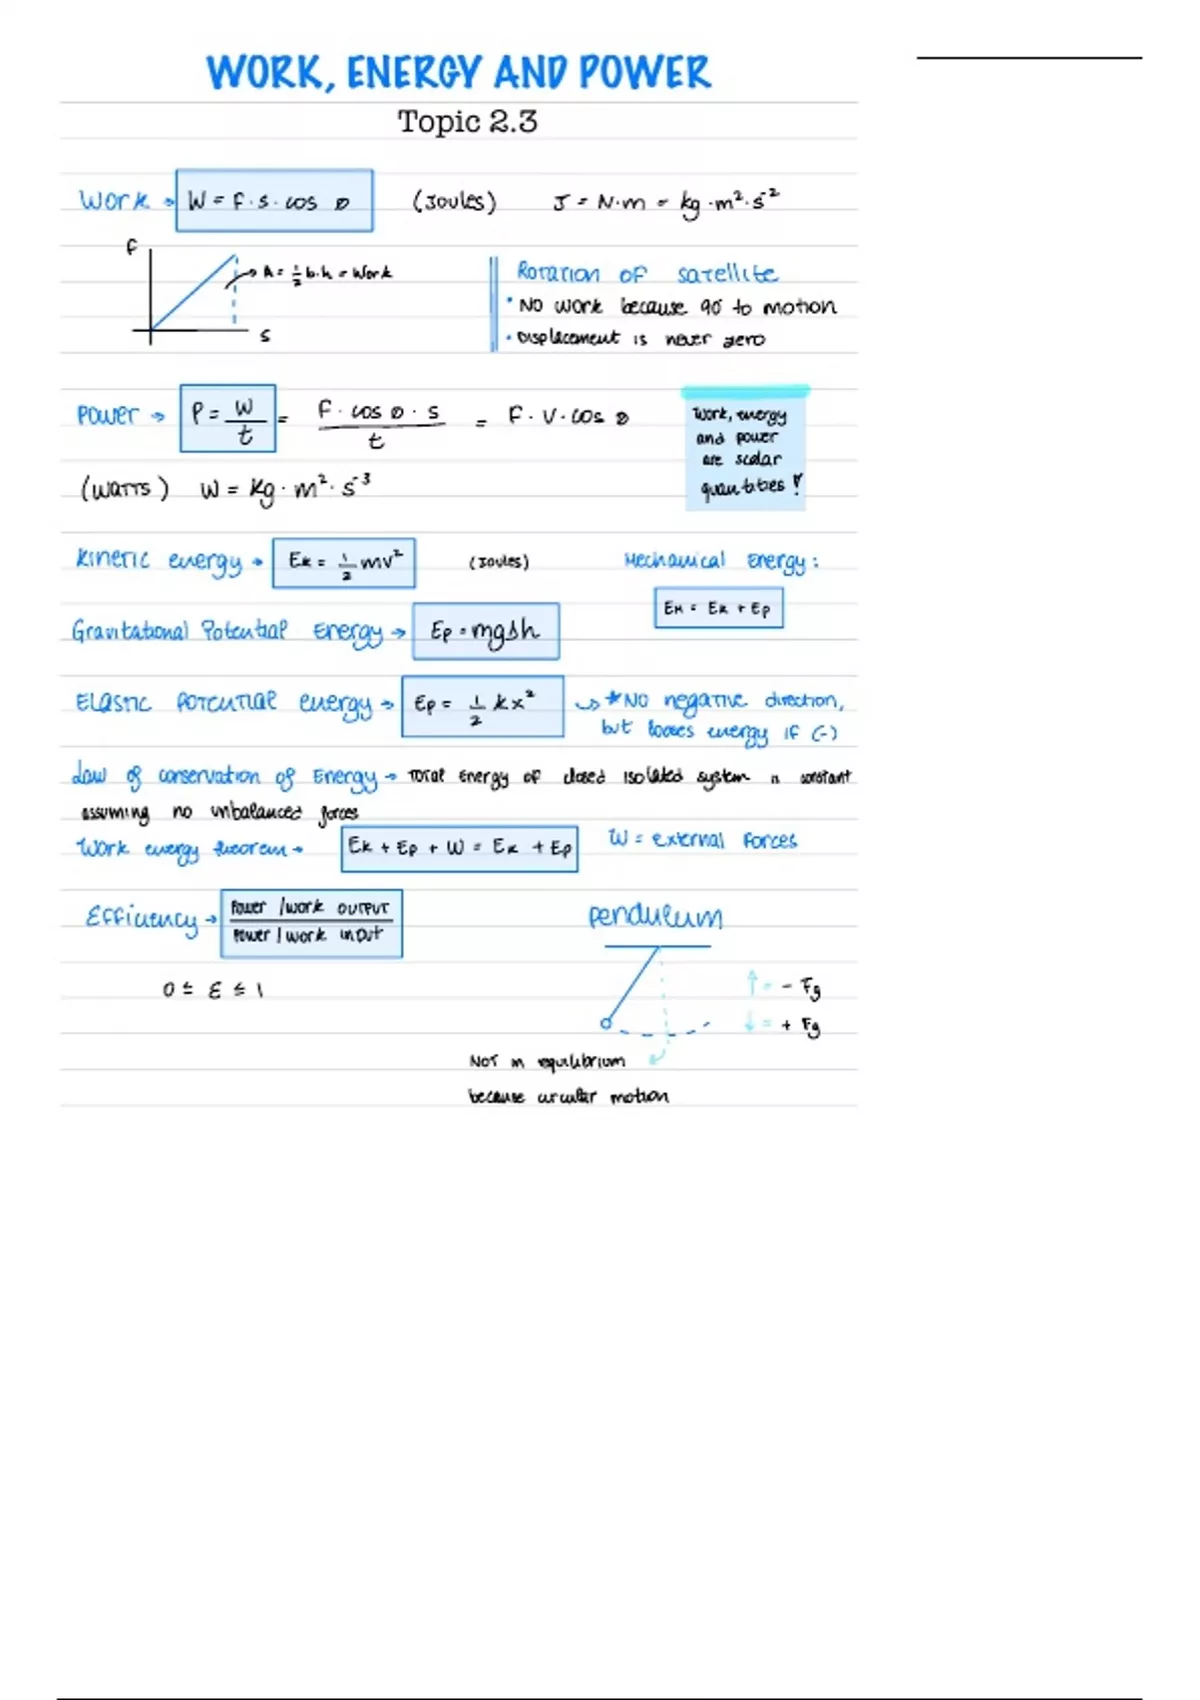 WORK, ENERGY AND POWER
Topic 2.3
Work → W = F · s · cos θ (Joules) J = N·m = kg · m² · s⁻²
F
→ A = ½ b·h = Work
s
Rotation of satellite
• No work because 90° to motion
• Displacement is never zero
Power → P = W/t = F · cos θ · s / t = F · v · cos θ
Work, energy
and power
are scalar
quantities!
(Watts) W = kg · m² · s⁻³
Kinetic energy → Ek = ½ mv² (Joules)
Mechanical Energy:
EM = Ek + Ep
Gravitational Potential Energy → Ep = mgΔh
Elastic potential energy → Ep = ½ kx² ↪ *No negative direction,
but looses energy if (-)
Law of conservation of Energy → Total Energy of closed isolated system is constant
assuming no unbalanced forces
Work energy theorem → Ek + Ep + W = Ek + Ep W = external forces
Efficiency → Power / work output
Power / work input
0 ≤ ε ≤ 1
Pendulum
↑ = - Fg
↓ = + Fg
Not in equilibrium
because circular motion